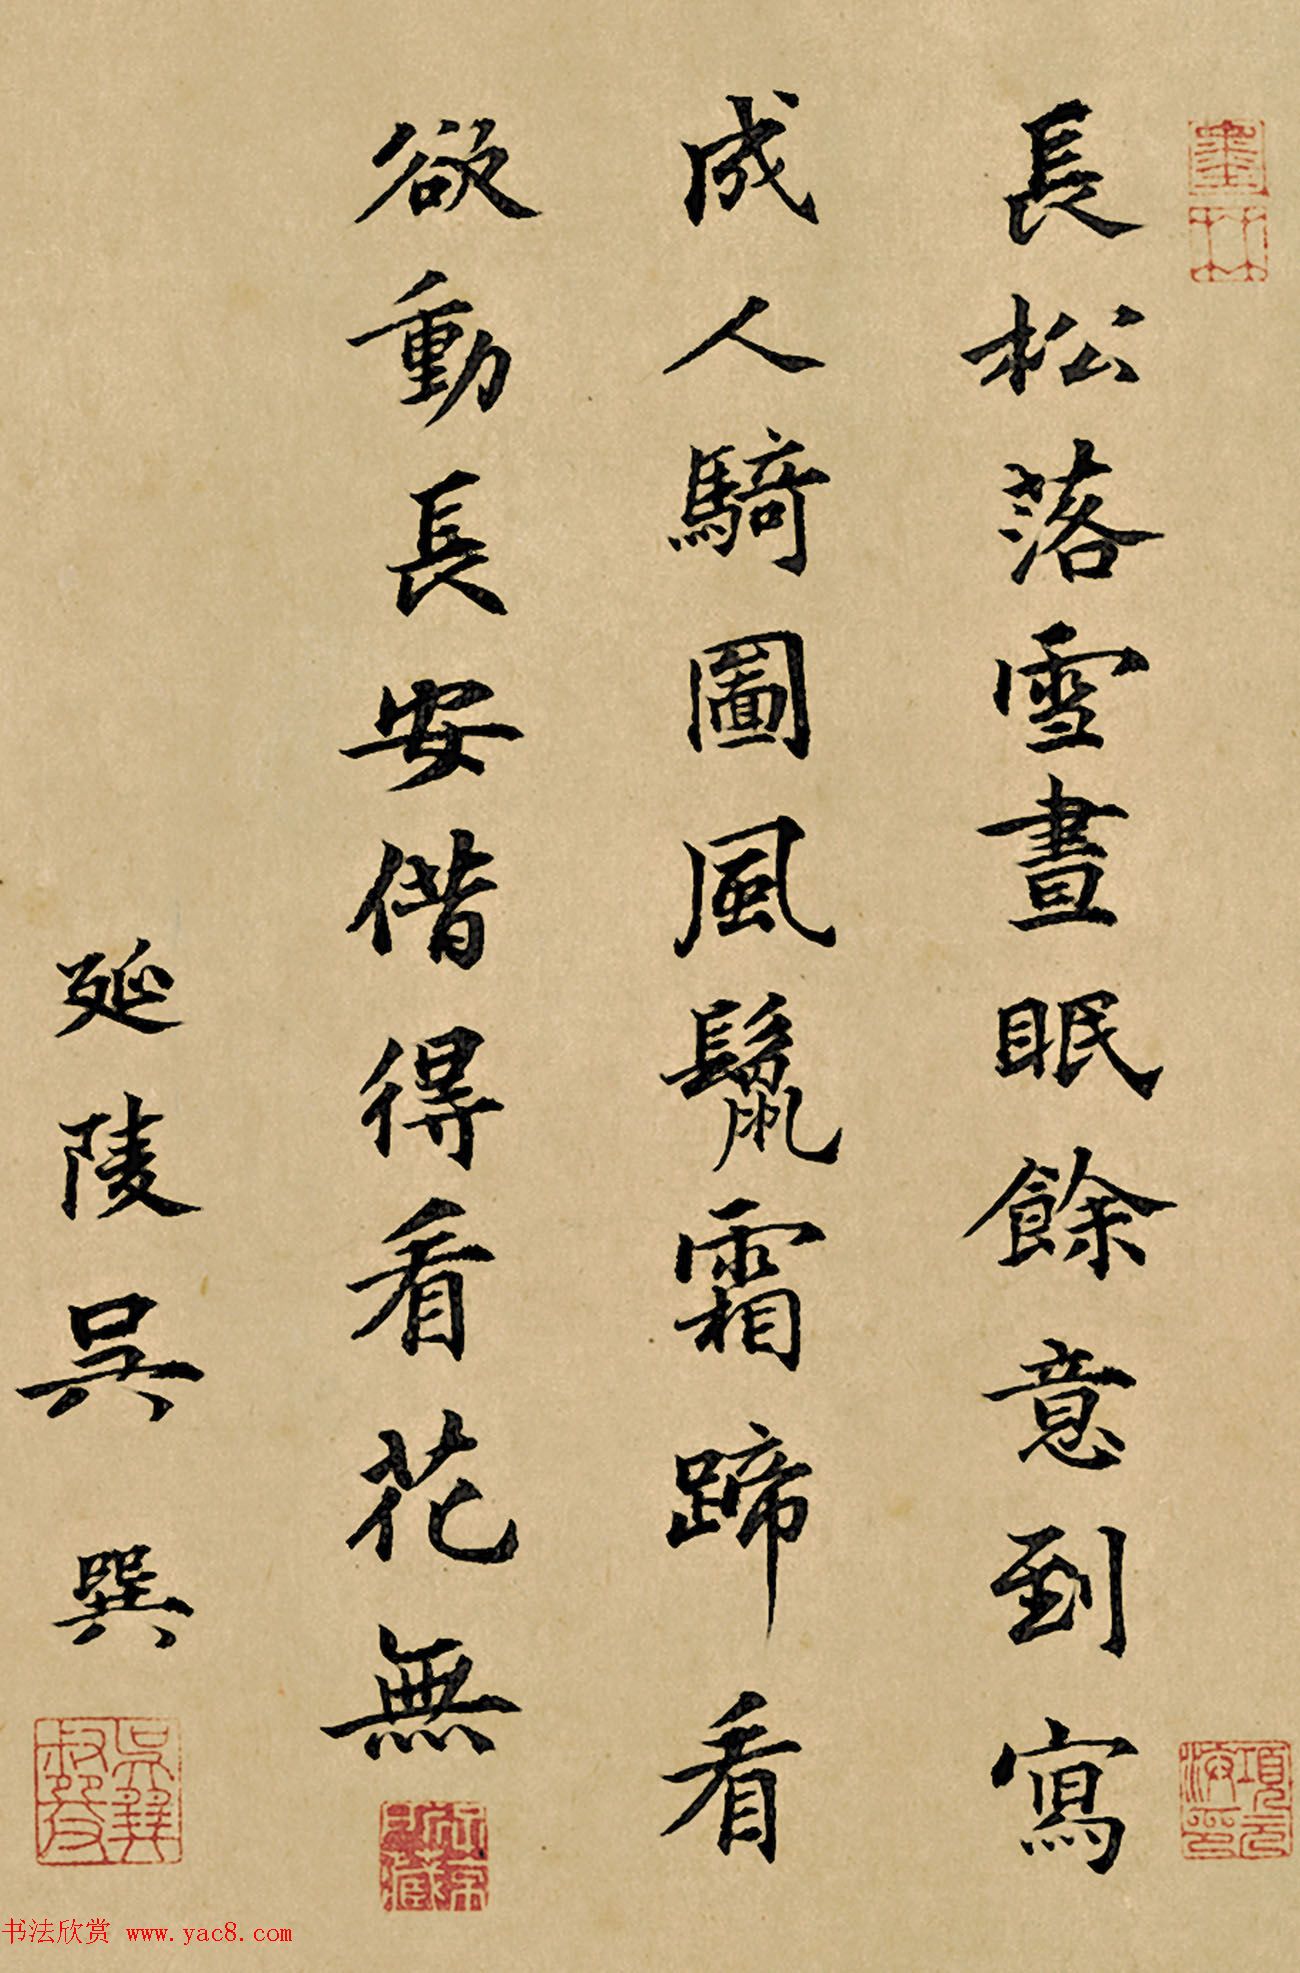 長松落雪晝眠餘意到寫
成人騎圖風鬣霜蹄看
欲動長安借得看花無
延陵吳巽
書法欣賞 www.yac8.com